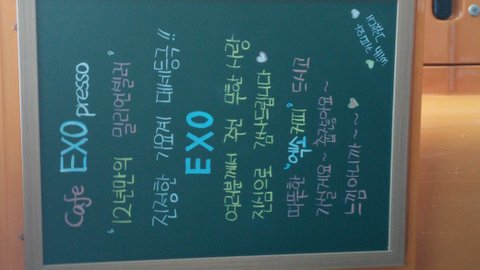 Cafe EXOpresso
'12년만의 밀리언셀러'
진정한 가요계 대세등극!!
EXO
여러분께서 주신 무한 사랑
진심으로 감사드립니다
따뜻한 "응수커피" 드시고
가실게요~ 춥잖아요~
느낌아니까~~